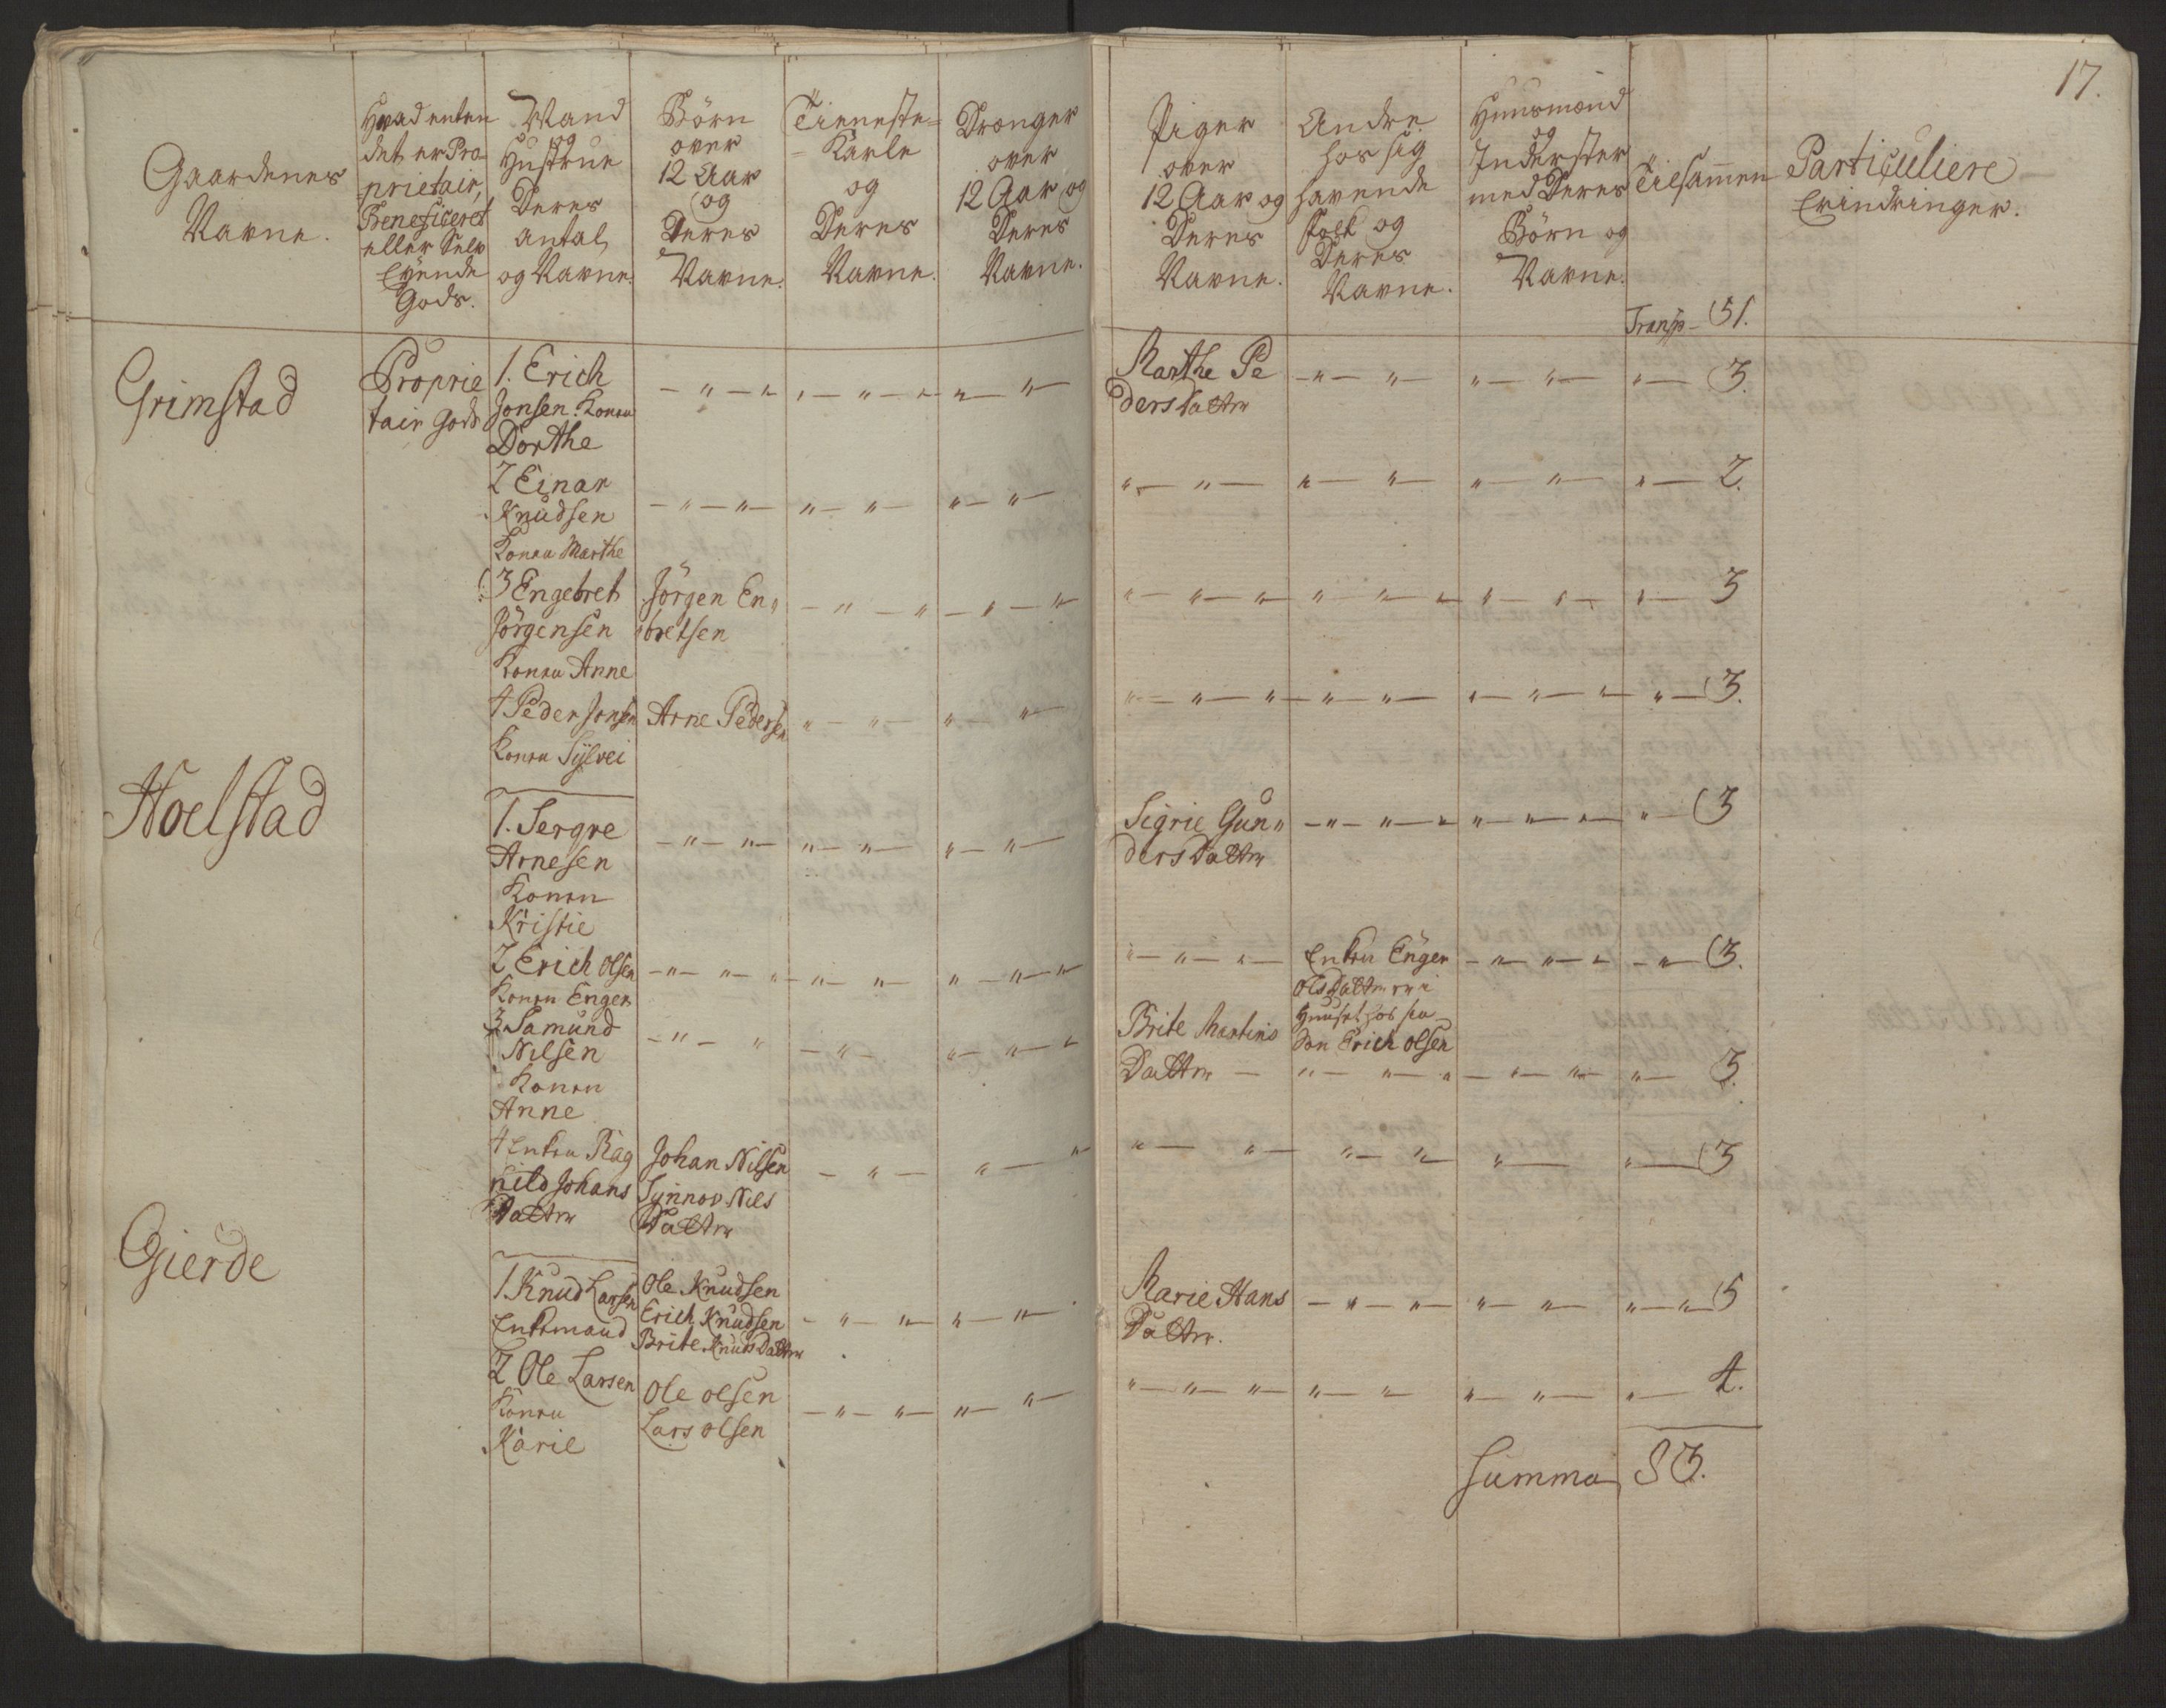 17.
Gaardenes
Navne.
Hvad enten
det er Pro
prietair,
Beneficeret
eller Selv
Eyende
Gods.
Mand
og
Hustrue
Deres
antal
og Navne.
Börn
over
12 Aar
og
Deres
Navne.
Tieneste=
Karle
og
Deres
Navne.
Drænger
over
12 Aar og
Deres
Navne.
Piger
over
12 Aar og
Deres
Navne.
Andre
hos sig
havende
folk og
Deres
Navne.
Huusmænd
og
Inderster
med Deres
Börn og
Navne.
Tilsammen
Particuliere
Erindringer.
Transp. 51.
Grimstad
Proprie
tair Gods
1. Erich
Jonsen. Konen
Dorthe
Marthe Pe
dersDatter
3.
2 Einar
Knudsen
Konen Marthe
2.
3 Engebret
Jörgensen
Konen Anne
Jörgen En„
bretsen
3
4 Peder Jonsen
Konen Sÿlvei
Arne Pedersen
3.
Hoelstad
1. Sergve
Arnesen
Konen
Kristie
Sigrie Gun„
dersDatter
3
2 Erich Olsen
Konen Enger
Enken Enger
OlsDatter er i
Huuset hos sin
Sön Erich Olsen
3.
3 Samund
Nilsen
Konen
Anne
Brite Martins
Datter
3.
4 Enken Rag
nild Johans
Datter
Johan Nilsen
Synnov Nils
Datter
3
Gierde
1. Knud Larsen
Enkemand
Ole Knudsen
Erich Knudsen
Brite KnudsDatter
Marie Hans
Datter.
5
2 Ole Larsen
Konen
Karie
Ole Olsen
Lars Olsen
4.
Summa 83.